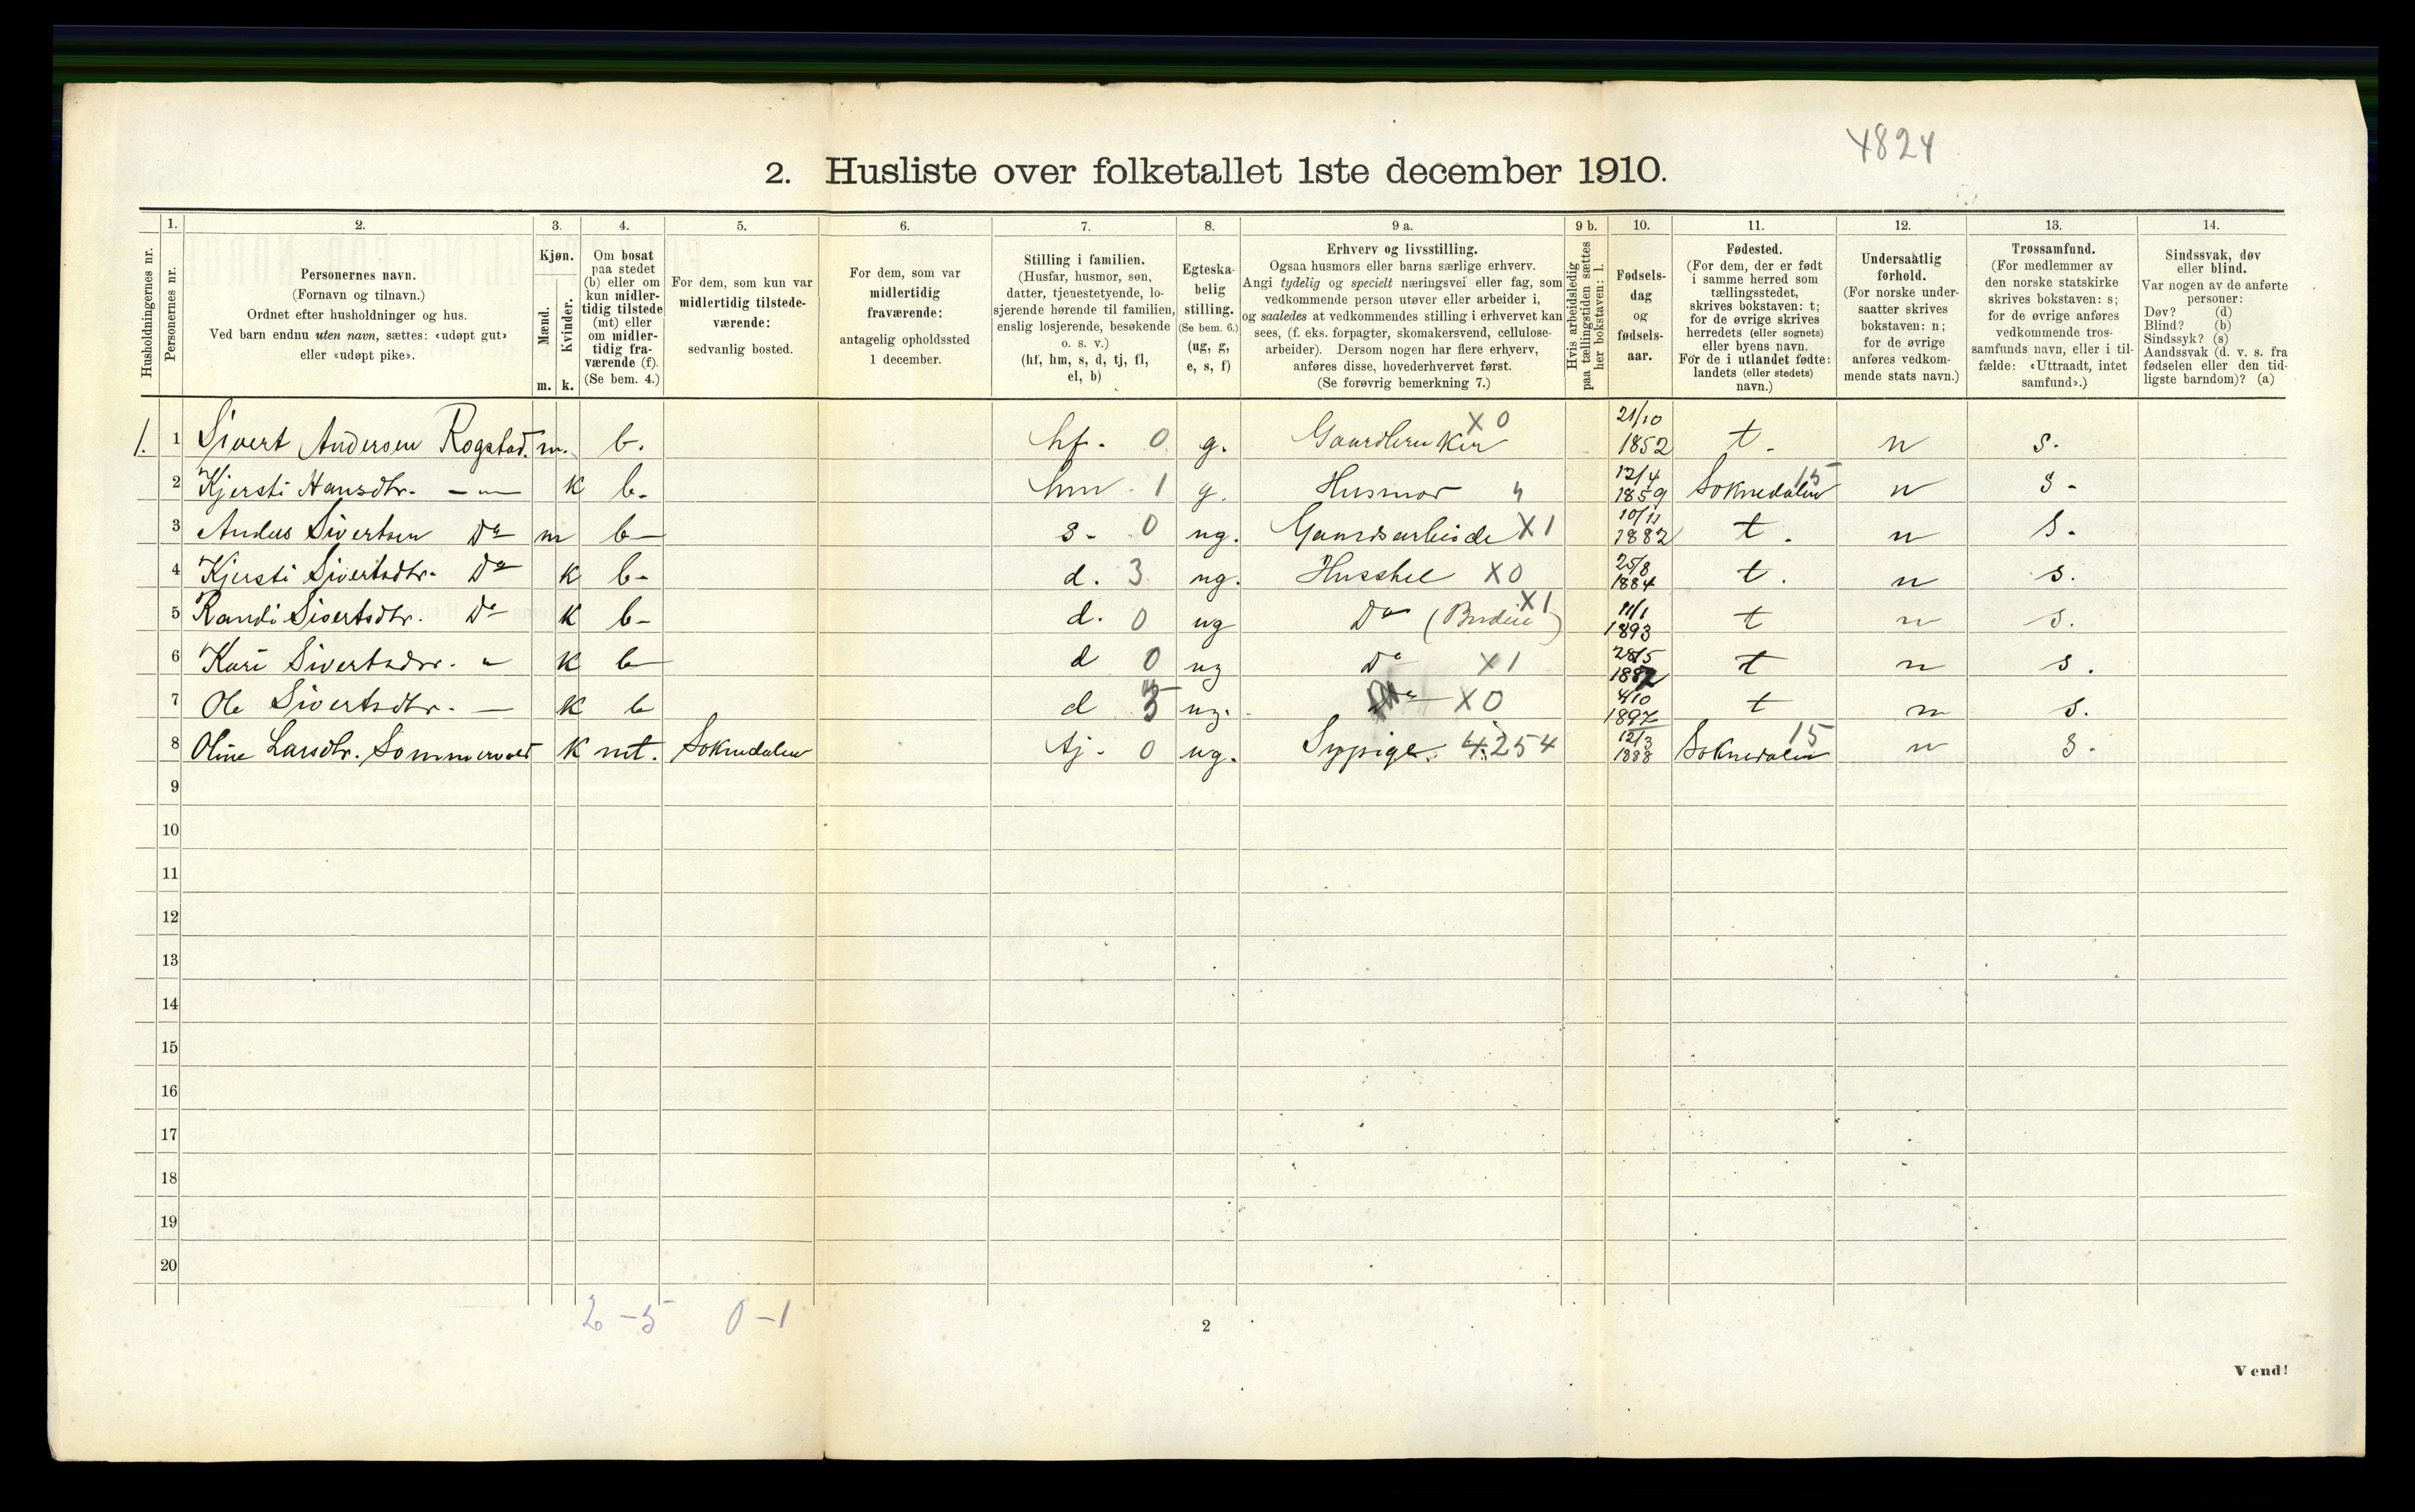 4824
2. Husliste over folketallet 1ste december 1910.
Husholdningernes nr.
1.
Personernes nr.
2.
Personernes navn.
(Fornavn og tilnavn.)
Ordnet efter husholdninger og hus.
Ved barn endnu uten navn, sættes: «udøpt gut»
eller «udøpt pike».
3.
Kjøn.
Mænd.
Kvinder.
m. k.
4.
Om bosat
paa stedet
(b) eller om
kun midler-
tidig tilstede
(mt) eller
om midler-
tidig fra-
værende (f).
(Se bem. 4.)
5.
For dem, som kun var
midlertidig tilstede-
værende:
sedvanlig bosted.
6.
For dem, som var
midlertidig
fraværende:
antagelig opholdssted
1 december.
7.
Stilling i familien.
(Husfar, husmor, søn,
datter, tjenestetyende, lo-
sjerende hørende til familien,
enslig losjerende, besøkende
o. s. v.)
(hf, hm, s, d, tj, fl,
el, b)
8.
Egteska-
belig
stilling.
(Se bem. 6.)
(ug, g,
e, s, f)
9 a.
Erhverv og livsstilling.
Ogsaa husmors eller barns særlige erhverv.
Angi tydelig og specielt næringsvei eller fag, som
vedkommende person utøver eller arbeider i,
og saaledes at vedkommendes stilling i erhvervet kan
sees, (f. eks. forpagter, skomakersvend, cellulose-
arbeider). Dersom nogen har flere erhverv,
anføres disse, hovederhvervet først.
(Se forøvrig bemerkning 7.)
9 b.
Hvis arbeidsledig
paa tællingstiden sættes
her bokstaven: l.
10.
Fødsels-
dag
og
fødsels-
aar.
11.
Fødested.
(For dem, der er født
i samme herred som
tællingsstedet,
skrives bokstaven: t;
for de øvrige skrives
herredets (eller sognets)
eller byens navn.
For de i utlandet fødte:
landets (eller stedets)
navn.)
12.
Undersaatlig
forhold.
(For norske under-
saatter skrives
bokstaven: n;
for de øvrige
anføres vedkom-
mende stats navn.)
13.
Trossamfund.
(For medlemmer av
den norske statskirke
skrives bokstaven: s;
for de øvrige anføres
vedkommende tros-
samfunds navn, eller i til-
fælde: «Uttraadt, intet
samfund».)
14.
Sindssvak, døv
eller blind.
Var nogen av de anførte
personer:
Døv? (d)
Blind? (b)
Sindssyk? (s)
Aandssvak (d. v. s. fra
fødselen eller den tid-
ligste barndom)? (a)
1. 1 Sivert Andersen Rogstad. m. b. hf. 0 g. Gaardbruker X 0 21/10 1852 t. n s.
2 Kjersti Hansdtr. — k b. hm. 1 g. Husmor 4 12/4 1859 Soknedalen 15 n s.
3 Anders Sivertsen Do m b s. 0 ug. Gaardsarbeide X1 10/11 1882 t. n s.
4 Kjersti Sivertsdtr. Do k b d. 3 ug. Husstel X0 25/8 1884 t. n s.
5 Randi Sivertsdtr. Do k b d. 0 ug Do (Budeie) X1 11/1 1893 t n s.
6 Kari Sivertsdtr. " k b d 0 ug Do X1 28/5 t n s.
7 Ole Sivertsdtr. — k b d ug. Do X0 4/10 1897 t n s.
8 Oline Larsdtr. Sommervold k mt. Soknedalen tj. 0 ug. Sypige. 4254 12/3 1888 Soknedalen 15 n s.
9
10
11
12
13
14
15
16
17
18
19
20
2 – 5 0 – 1
2
Vend!